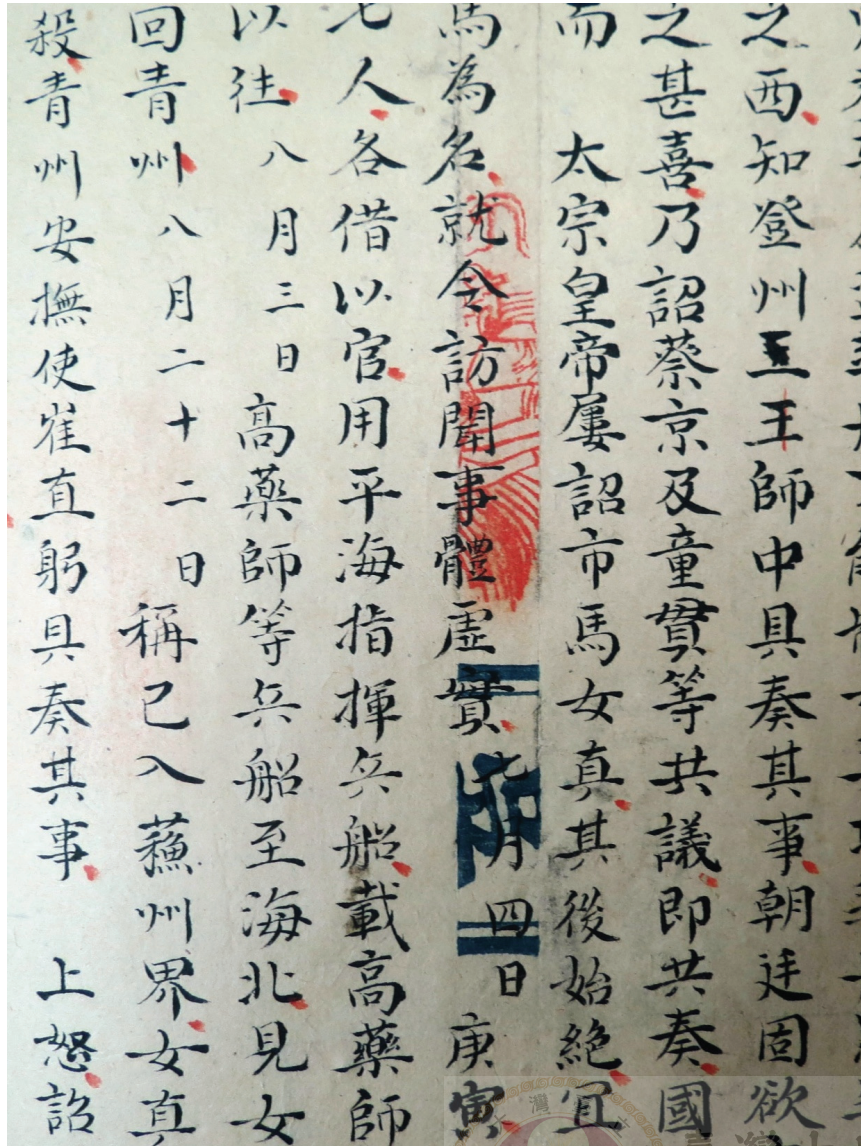 之西知登州王王師中具奏其事朝廷固欲
之甚喜乃詔蔡京及童貫等共議即共奏國
而　太宗皇帝屢詔市馬女真其後始絕宜
馬為名就令訪聞事體虛實七月四日庚寅
七人各借以官用平海指揮兵船載高藥師
以往八月三日高藥師等兵船至海北見女
回青州八月二十二日稱已入蘓州界女真
殺青州安撫使崔直躬具奏其事　上怒詔